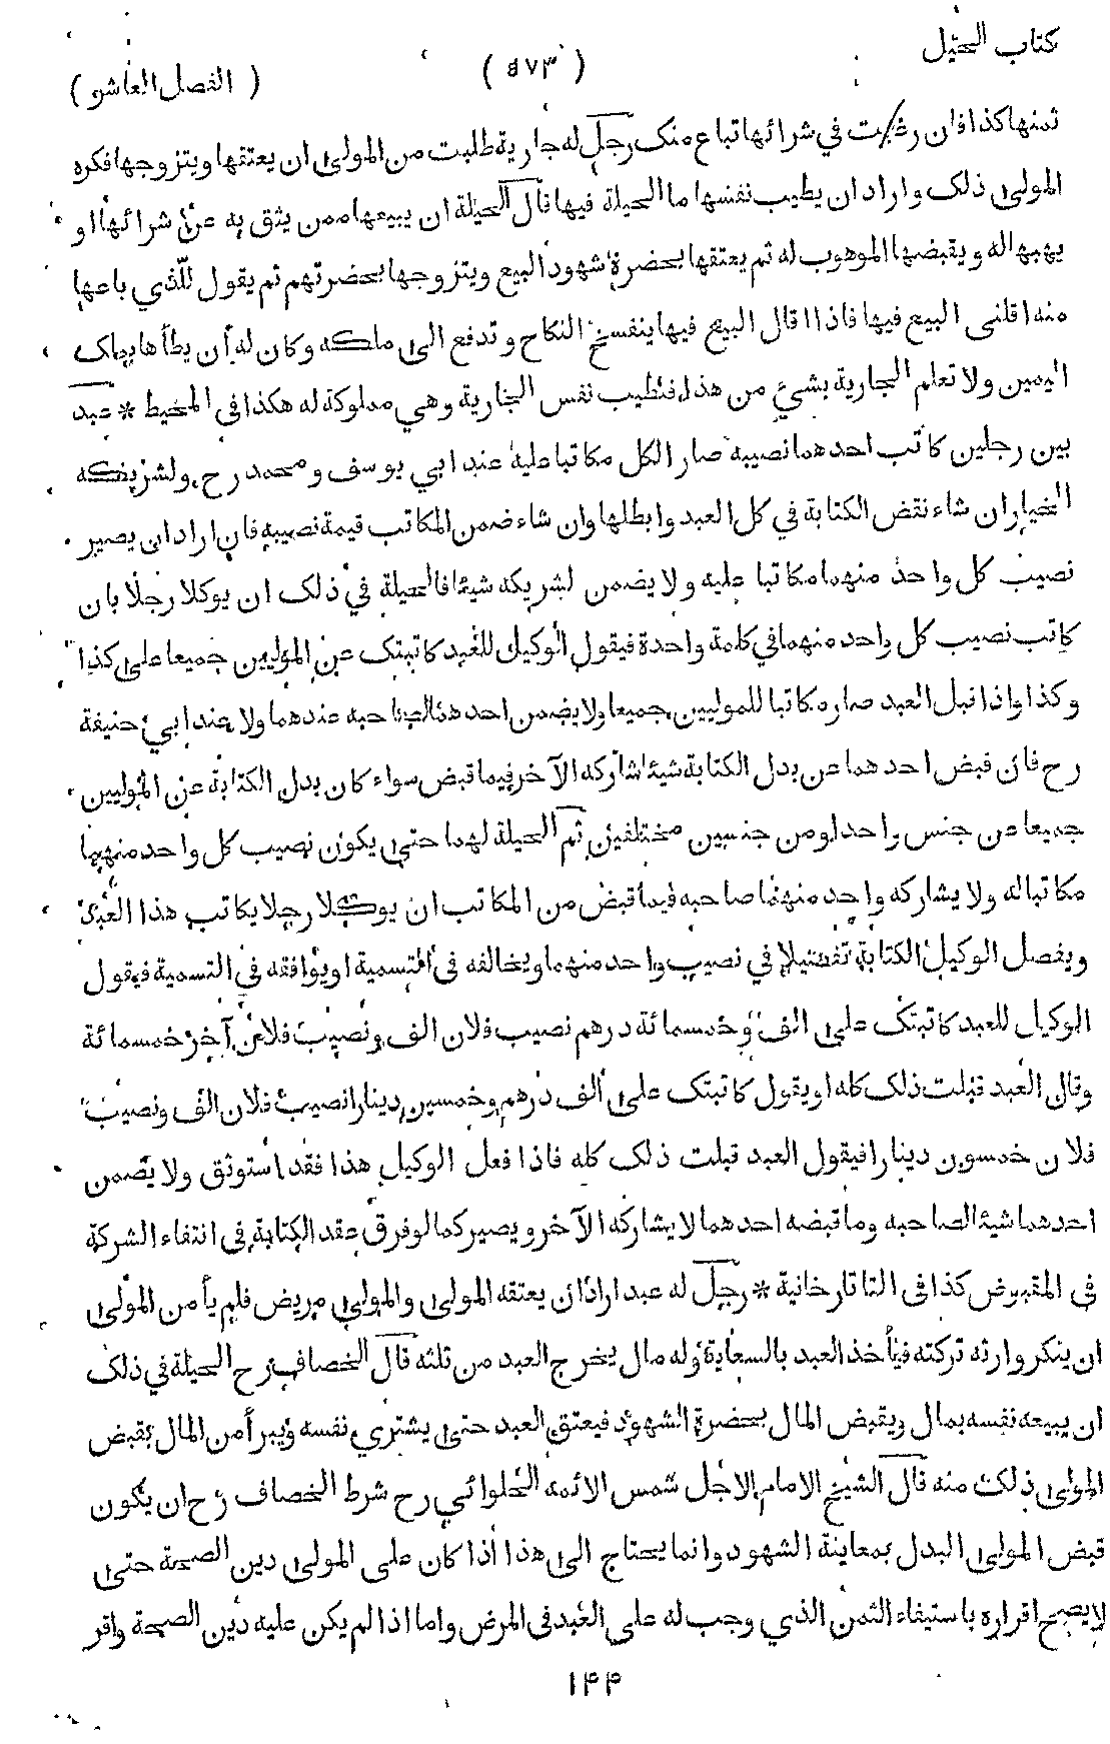 كتاب الحيل
( ٥٧٣ )
( الفصل العاشر )
ثمنها كذا فان رغبت في شرائها تباع منك رجل له جارية طلبت من المولى ان يعتقها ويتزوجها فكره
المولى ذلك واراد ان يطيب نفسها ما الحيلة فيها قال الحيلة ان يبيعها ممن يثق به عن شرائها او
يهبها له ويقبضها الموهوب له ثم يعتقها بحضرة شهود البيع ويتزوجها بحضرتهم ثم يقول للذي باعها
منه اقلني البيع فيها فاذا اقال البيع فيها ينفسخ النكاح وتدفع الى ملكه وكان له أن يطأها بملك
اليمين ولا تعلم الجارية بشيء من هذا فتطيب نفس الجارية وهي مملوكة له هكذا في المحيط * عبد
بين رجلين كاتب احدهما نصيبه صار الكل مكاتبا عليه عند ابي يوسف ومحمد رح ولشريكه
الخيار ان شاء نقض الكتابة في كل العبد وابطلها وان شاء ضمن المكاتب قيمة نصيبه فان اراد ان يصير
نصيب كل واحد منهما مكاتبا عليه ولا يضمن لشريكه شيئا فالحيلة في ذلك ان يوكلا رجلا بان
كاتب نصيب كل واحد منهما في كلمة واحدة فيقول الوكيل للعبد كاتبتك عن الموليين جميعا على كذا
وكذا واذا قبل العبد صار مكاتبا للموليين جميعا ولا يضمن احدهما لصاحبه عندهما ولا عند ابي حنيفة
رح فان قبض احدهما عن بدل الكتابة شيئا شاركه الآخر فيما قبض سواء كان بدل الكتابة عن الموليين
جميعا من جنس واحد او من جنسين مختلفين ثم الحيلة لهما حتى يكون نصيب كل واحد منهما
مكاتبا له ولا يشاركه واحد منهما صاحبه فيما قبض من المكاتب ان يوكلا رجلا يكاتب هذا العبد
ويفصل الوكيل الكتابة تفصيلا في نصيب واحد منهما ويخالفه في التسمية او يوافقه في التسمية فيقول
الوكيل للعبد كاتبتك على الف وخمسمائة درهم نصيب فلان الف ونصيب فلان آخر خمسمائة
وقال العبد قبلت ذلك كله او يقول كاتبتك على ألف درهم وخمسين دينارا نصيب فلان الف ونصيب
فلان خمسون دينارا فيقول العبد قبلت ذلك كله فاذا فعل الوكيل هذا فقد استوثق ولا يضمن
احدهما شيئا لصاحبه وما قبضه احدهما لا يشاركه الآخر ويصير كما لو فرق عقد الكتابة في انتفاء الشركة
في المقبوض كذا في التاتارخانية * رجل له عبد اراد ان يعتقه المولى والمولى مريض فلم يأمن المولى
ان ينكر وارثه تركته فيأخذ العبد بالسعاية وله مال يخرج العبد من ثلثه قال الخصاف رح الحيلة في ذلك
ان يبيعه نفسه بمال ويقبض المال بحضرة الشهود فيعتق العبد حتى يشتري نفسه ويبرأ من المال بقبض
المولى ذلك منه قال الشيخ الامام الاجل شمس الائمة الحلوائي رح شرط الخصاف رح ان يكون
قبض المولى البدل بمعاينة الشهود وانما يحتاج الى هذا اذا كان على المولى دين الصحة حتى
لا يصح اقراره باستيفاء الثمن الذي وجب له على العبد في المرض واما اذا لم يكن عليه دين الصحة واقر
١٤٤